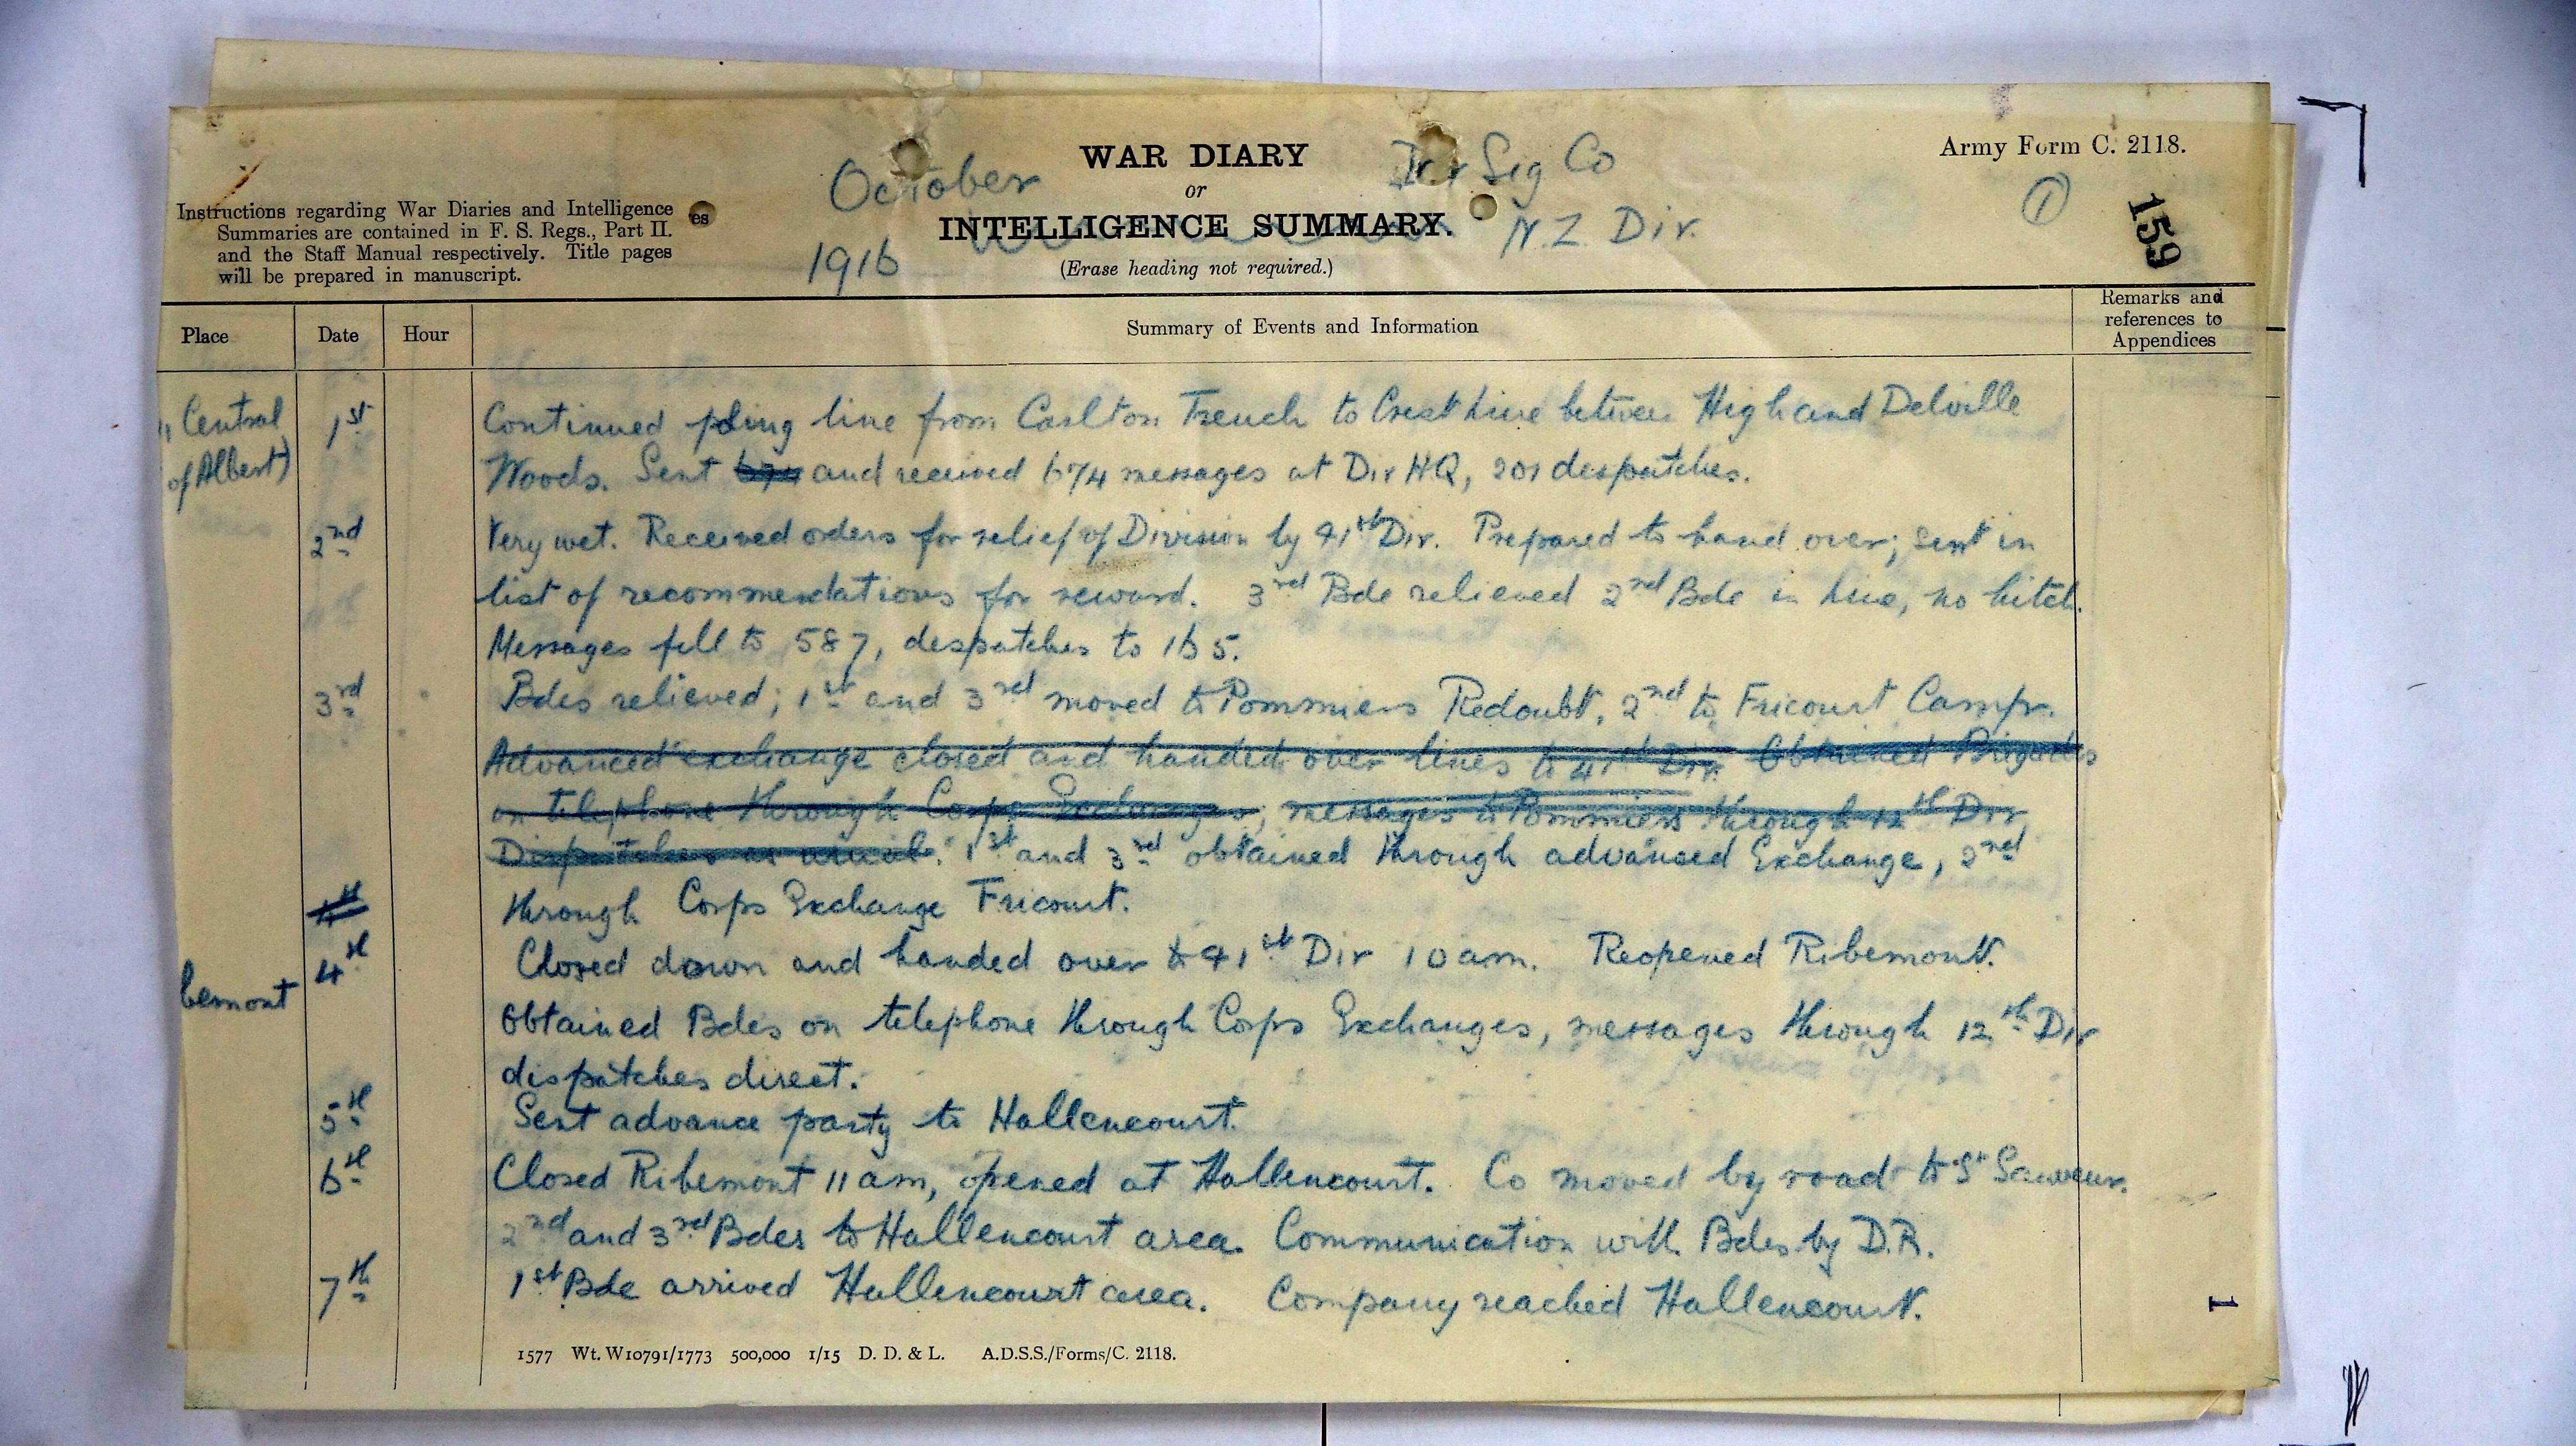 WAR DIARY
or
INTELLIGENCE SUMMARY.
(Erase heading not required.)
October
1916
Div Sig Co
N.Z. Div.
Army Form C. 2118.
1
159
Instructions regarding War Diaries and Intelligence
Summaries are contained in F. S. Regs., Part II.
and the Staff Manual respectively. Title pages
will be prepared in manuscript.
es
Place Date Hour Summary of Events and Information Remarks and
references to
Appendices
Central 1st Continued poling line from Carlton Trench to Crest Line between High and Delville
of Albert) Woods. Sent 674 and received 674 messages at Div HQ, 201 despatches.
2nd Very wet. Received orders for relief of Division by 41st Div. Prepared to hand over; sent in
list of recommendations for reward. 3rd Bde relieved 2nd Bde in line, no hitch.
Messages fell to 587, despatches to 165.
3rd Bdes relieved; 1st and 3rd moved to Pommiers Redoubt, 2nd to Fricourt Camp.
Advanced exchange closed and handed over lines to 41st Div. Obtained Brigades
on telephone through Corps Exchanges, messages to Pommiers through 12th Div
Dispatches as usual. 1st and 3rd obtained through advanced Exchange, 2nd
4th through Corps Exchange Fricourt.
4th Closed down and handed over to 41st Div 10 am. Reopened Ribemont.
bemont Obtained Bdes on telephone through Corps Exchanges, messages through 12th Div
dispatches direct.
5th Sent advance party to Hallencourt.
6th Closed Ribemont 11 am, opened at Hallencourt. Co moved by road to St Sauveur.
2nd and 3rd Bdes to Hallencourt area. Communication with Bdes by D.R.
7th 1st Bde arrived Hallencourt area. Company reached Hallencourt.
1
1577 Wt. W10791/1773 500,000 1/15 D. D. & L. A.D.S.S./Forms/C. 2118.